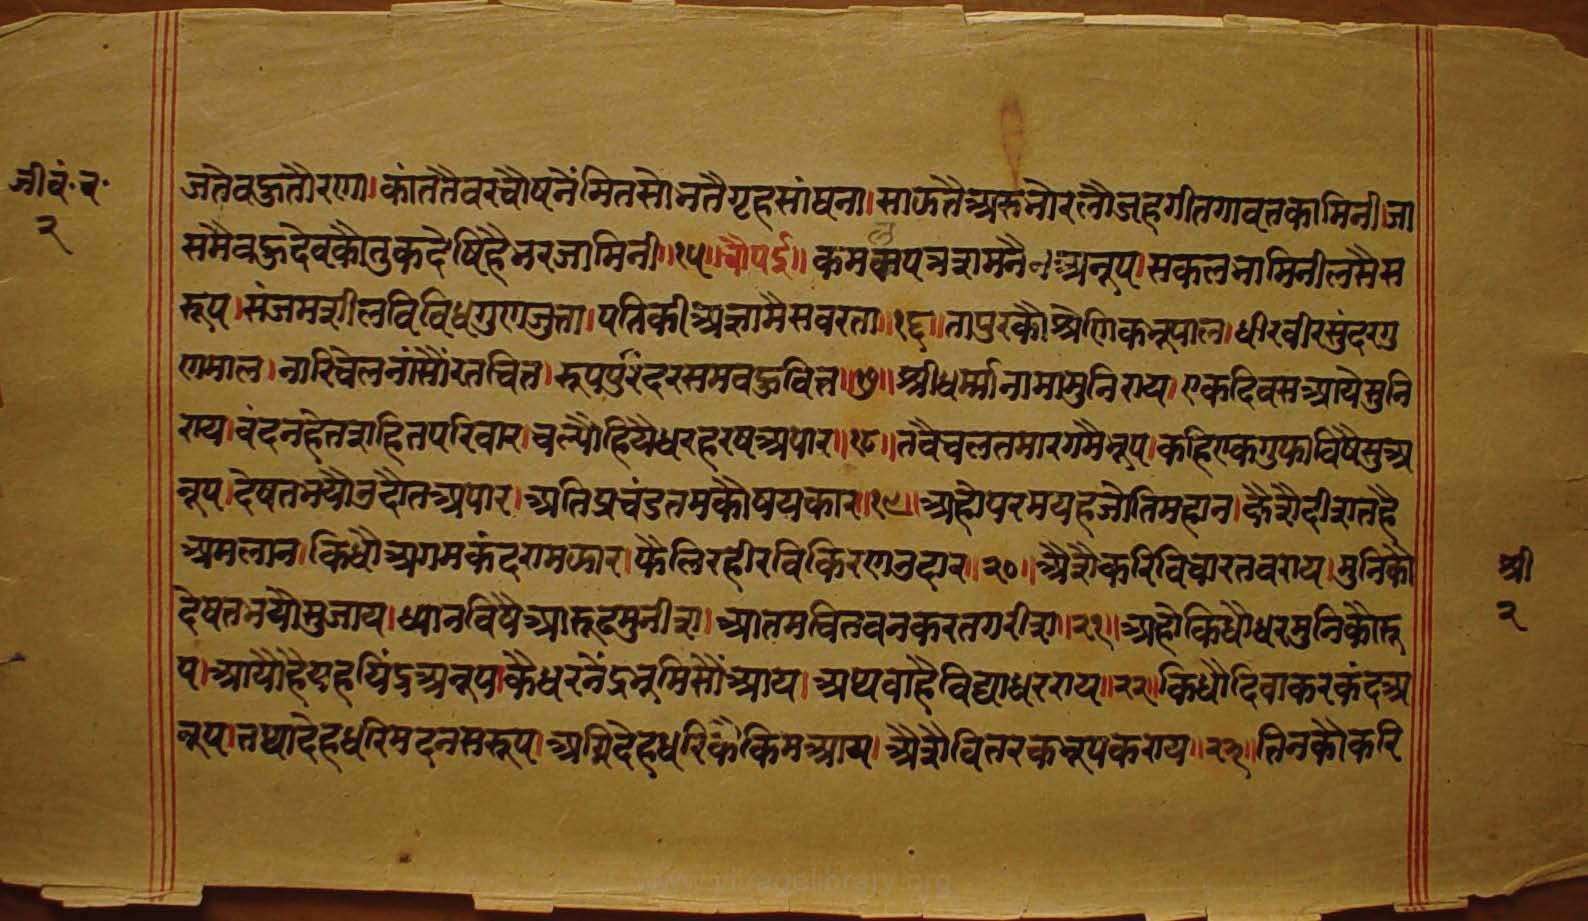 जीवं॰च॰
२
जतेवहुतौरणा।कांततैवरचौषनैंमितसोनतैगृहसांघना।साफतैअरुनोरलौजहगीतगावतकामिनी।जा
समैवहुदेवकौतुकदेषिहैनरजामिनी॥१५॥चौपई॥कमलपत्रशमनैनअनूप।सकलभामिनीलसैस
रूप।संजमशीलविविधगुणजुत्ता।पतिकीअज्ञामैसवरता॥१६॥तापुरकौश्रेणिकनृपाल।धीरवीरसुंदरगु
णमाल।नारिचेलनांसौंरतचित्त।रूपपुरंदरसमवहुवित्त॥१७॥श्रीधर्म्मनामामुनिराय।एकदिवसआयेमुनि
राय।वंदनहेतशहितपरिवार।चल्यौहियैधरहरषअपार॥१८॥तवैचलतमारगमैभूप।कहिएकगुफाविषैसुअ
नूप।देषतभयौउदौतअपार।अतिप्रचंडतमकौषयकार॥१९॥अहोपरमयहजोतिमहान।कैशैदीशतहै
अमलान।किधौअगमकंदरामफार।फैलिरहीरविकिरणउदार॥२०॥अैशैकरिविचारतवराय।मुनिकौ
देषतभयौसुजाय।ध्यानविषैआरूढमुनीश।आतमचितवनकरतगरीश॥२१॥अहोकिधौधरमुनिकौरू
प।आयौहैयहयिंद्रअनूप।कैधरनेंद्रभूमिसौंआय।अथवाहैविद्याधरराय॥२२॥किधौदिवाकरकंदअ
नूप।तथादेहधरिमदनसरूप।अग्निदेहधरिकैकिमआय।अैशैवितरकभूपकराय॥२३॥तिनकौकरि
श्री
२